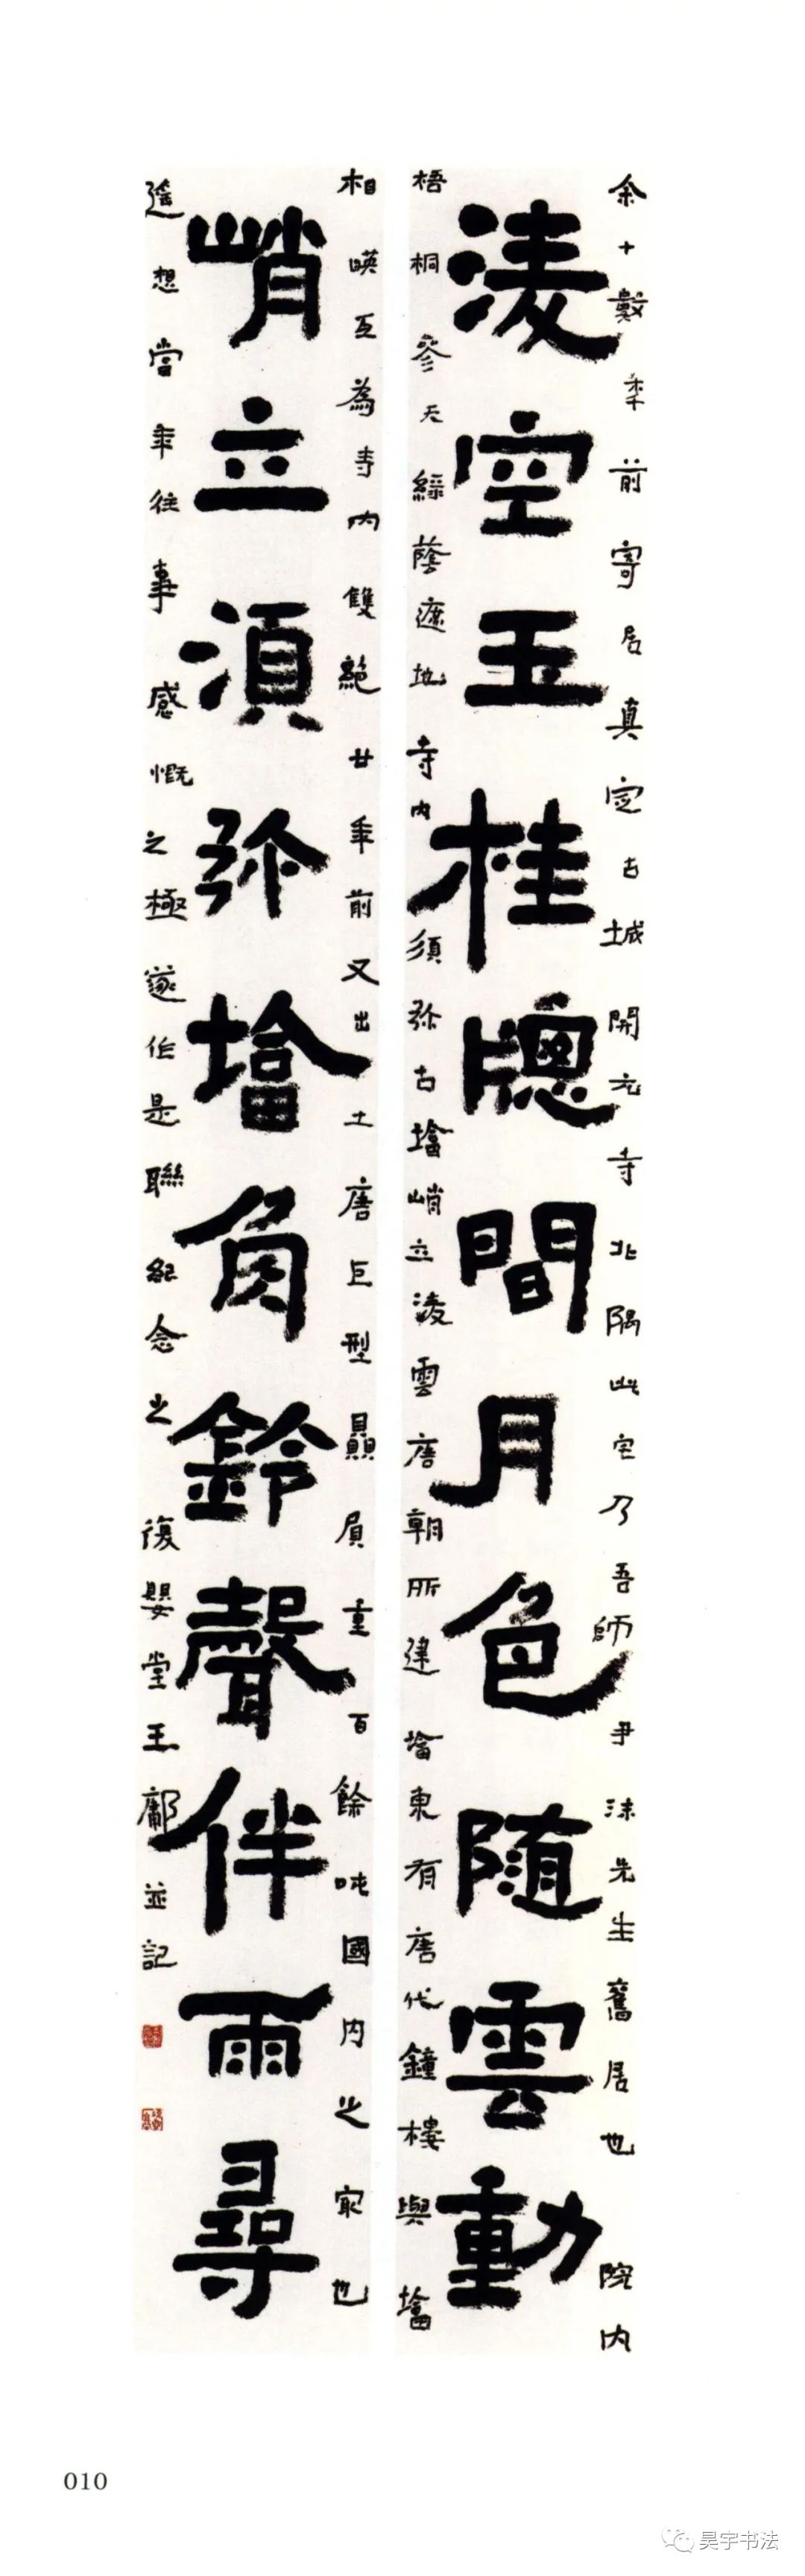 余十數年前寄居真定古城開元寺北隅此宅乃吾師尹沫先生舊居也院内
淩空玉桂牎間月色随雲動
梧桐參天綠蔭遮地寺内須弥古墖峭立淩雲唐朝所建墖東有唐代鐘樓與墖
相暎互為寺内雙絕廿年前又出土唐巨型贔屓重百餘吨國内之冣也
峭立湏弥墖角鈴聲伴雨尋
遥想當年往事感慨之極遂作是聯紀念之復嬰堂王鄘並記
010
昊宇书法